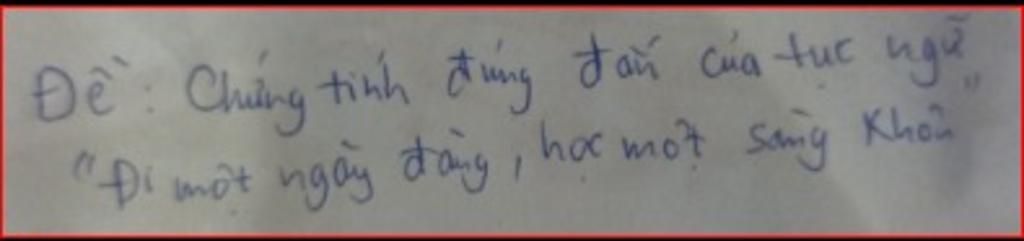 Đề: Chứng tính đúng đắn của tục ngữ
"Đi một ngày đàng, học một sàng khôn"